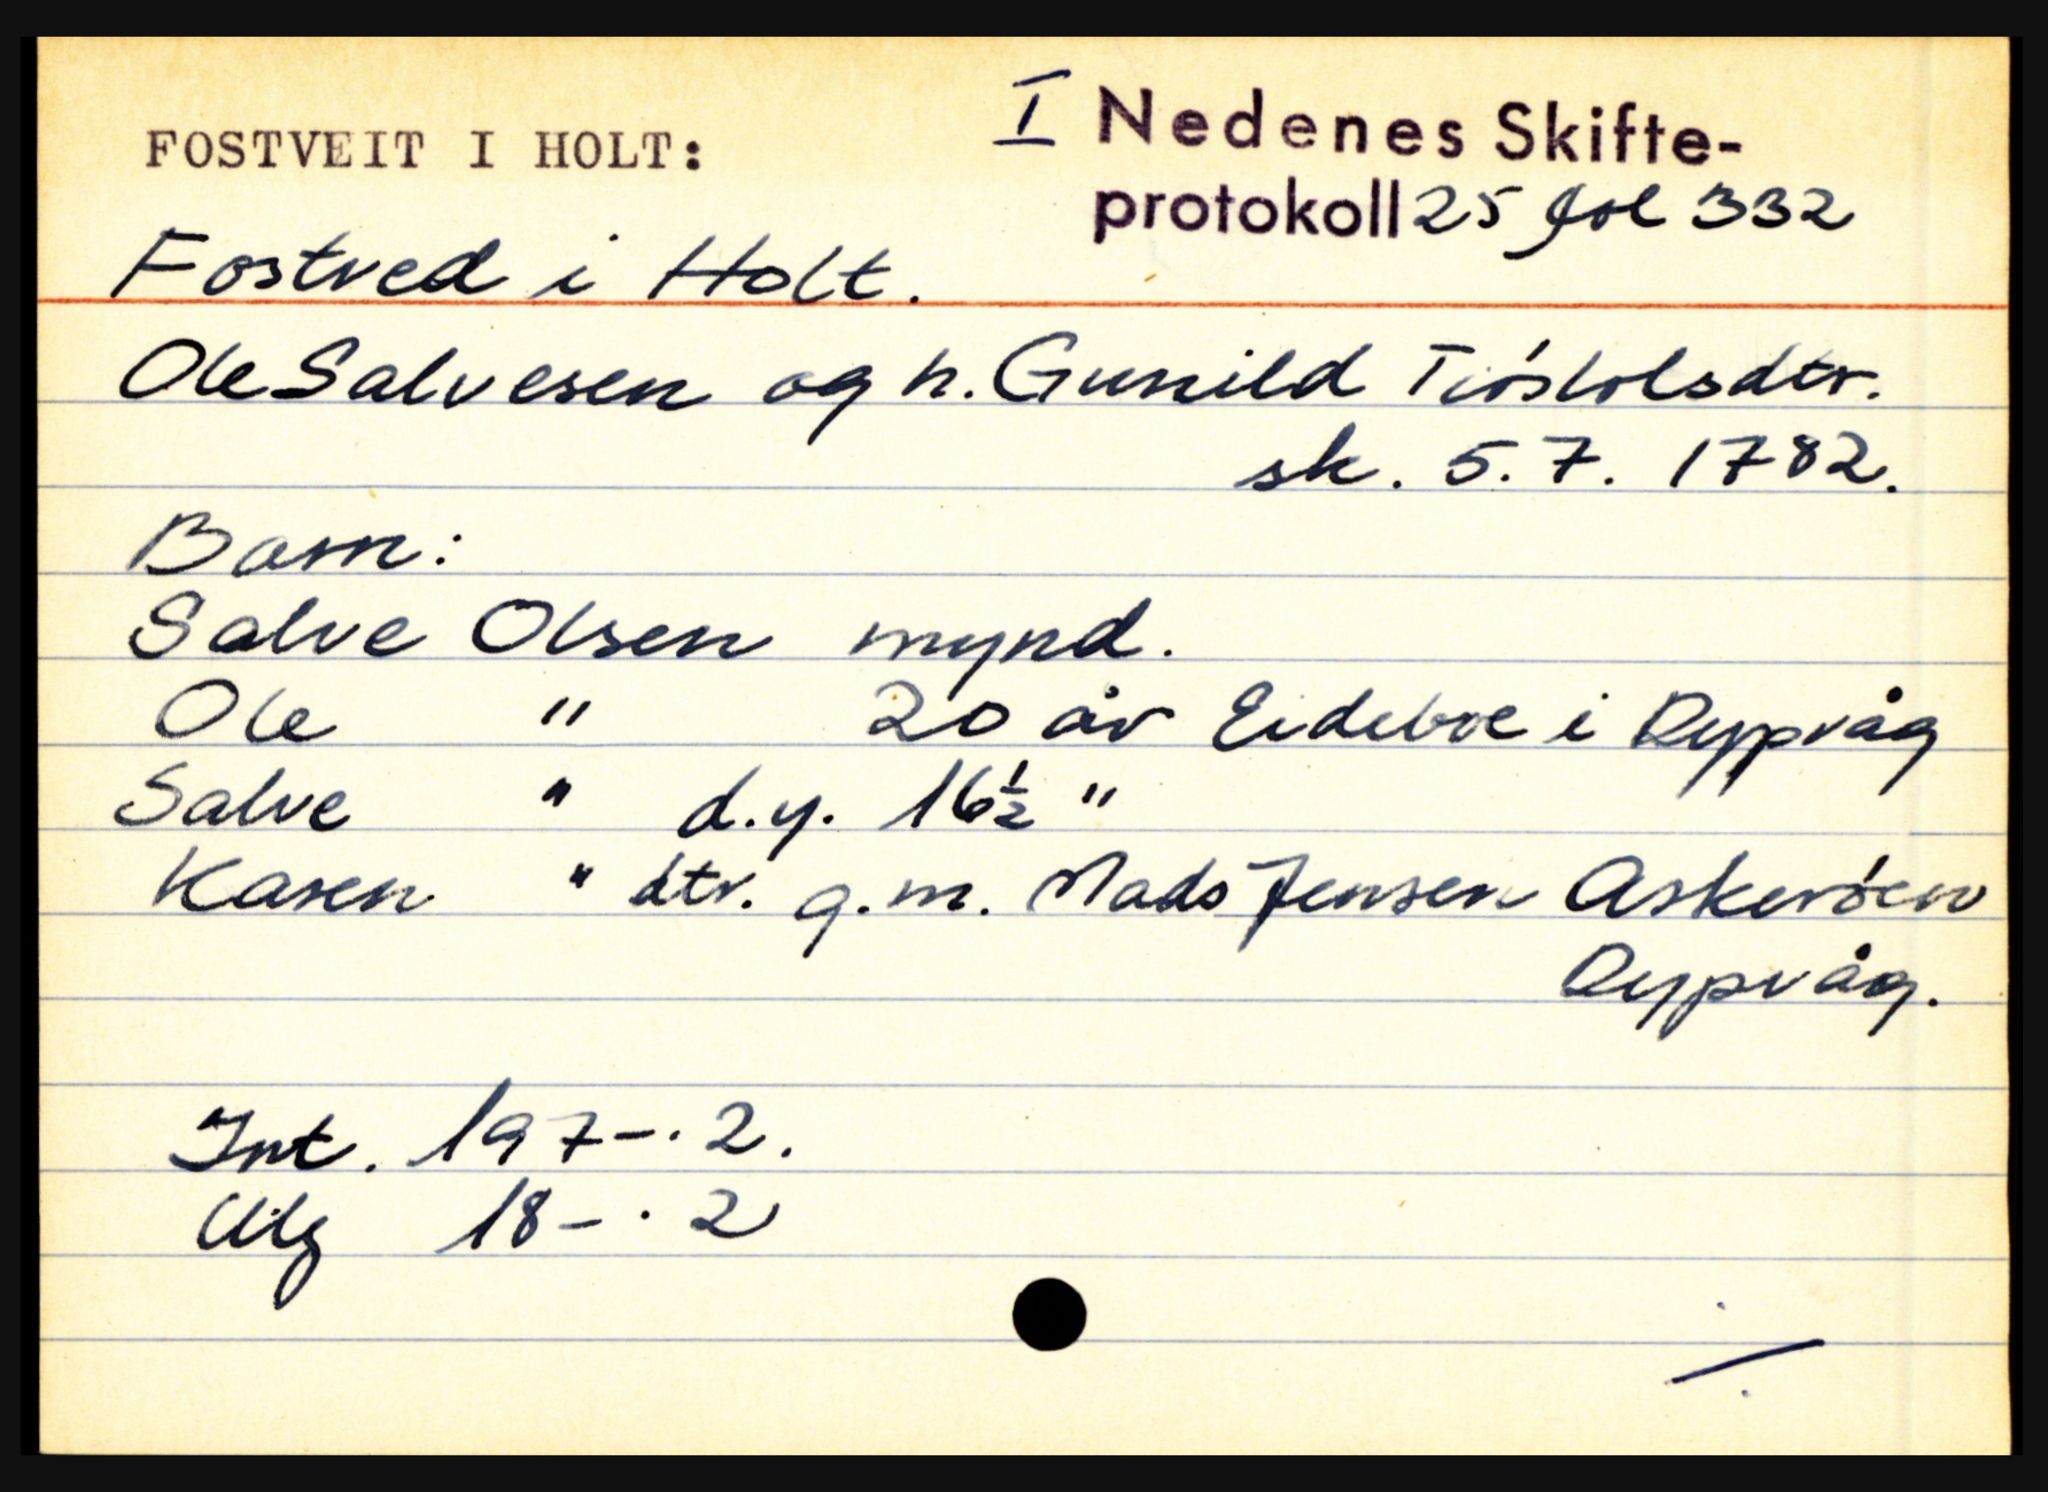 I Nedenes Skifte-
FOSTVEIT I HOLT:
protokoll 25 fol 332
Fostved i Holt.
Ole Salvesen og h. Gunild Tiósto​lsdtr.
sk. 5.7. 1782.
Barn:
Salve Olsen mynd.
Ole " 20 år Eideboe i Dypvåg
Salve " d.y. 16½ "
Karen " dtr. g.m. Mads Jensen Askeróen
Dypvåg.
Int. 197-.2.
Utlg 18-.2